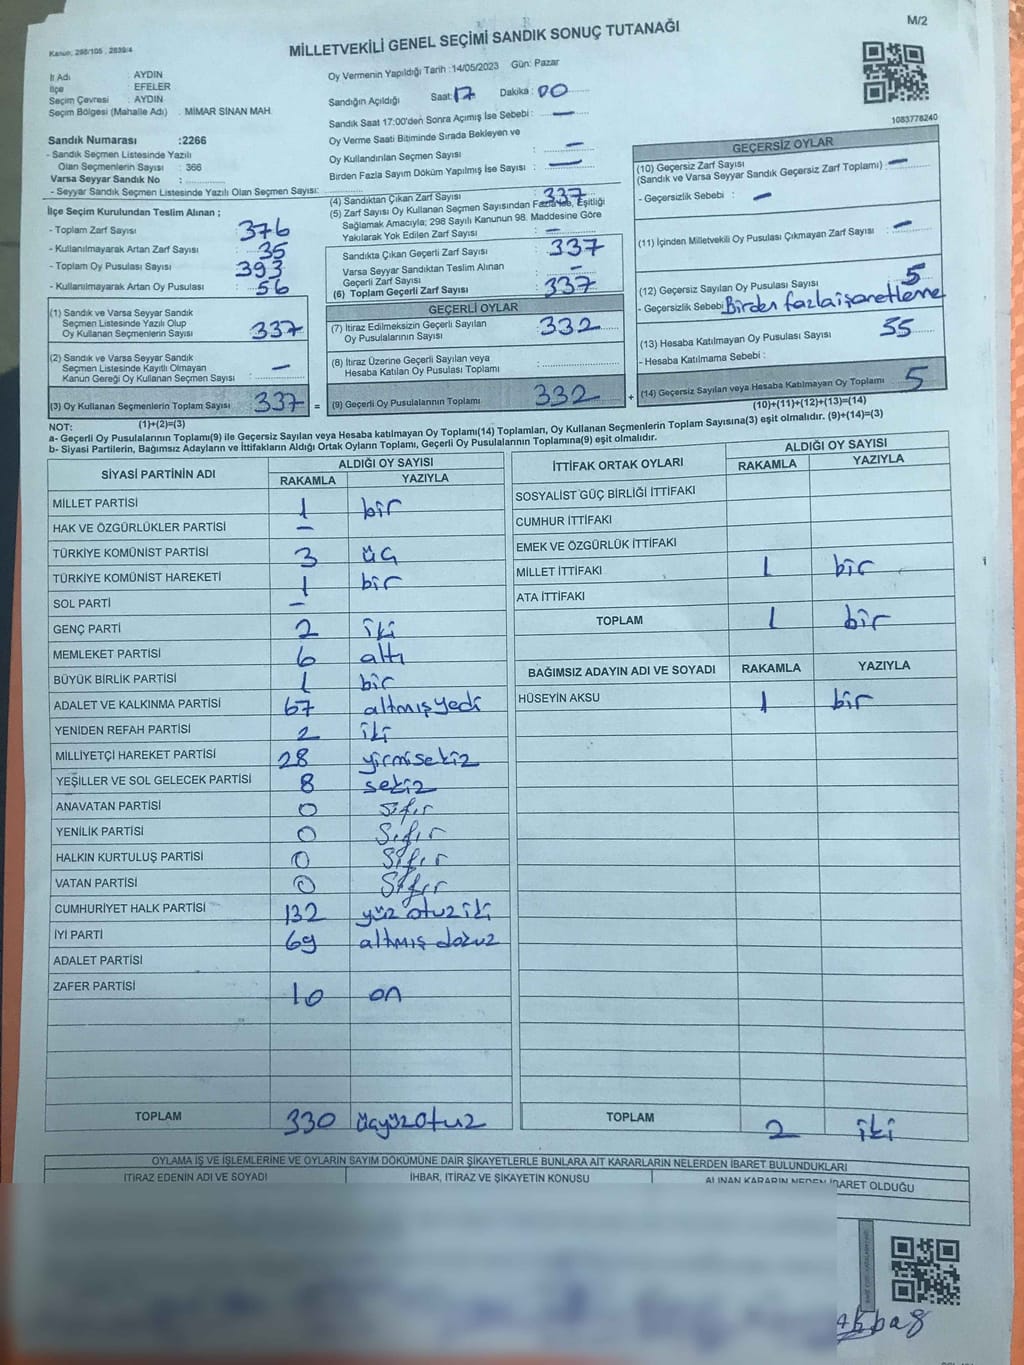 M/2
Kanun, 298/105 , 2839/4
MİLLETVEKİLİ GENEL SEÇİMİ SANDIK SONUÇ TUTANAĞI
İl Adı : AYDIN
İlçe : EFELER
Seçim Çevresi : AYDIN
Seçim Bölgesi (Mahalle Adı) : MİMAR SİNAN MAH.
Oy Vermenin Yapıldığı Tarih :14/05/2023 Gün: Pazar
Sandığın Açıldığı Saat: 17 Dakika : 00
Sandık Saat 17:00'den Sonra Açımış İse Sebebi : —
Oy Verme Saati Bitiminde Sırada Bekleyen ve
Oy Kullandırılan Seçmen Sayısı : —
Birden Fazla Sayım Döküm Yapılmış İse Sayısı : —
1083778240
Sandık Numarası :2266
- Sandık Seçmen Listesinde Yazılı
Olan Seçmenlerin Sayısı : 366
Varsa Seyyar Sandık No :
- Seyyar Sandık Seçmen Listesinde Yazılı Olan Seçmen Sayısı:
İlçe Seçim Kurulundan Teslim Alınan ;
- Toplam Zarf Sayısı : 376
- Kullanılmayarak Artan Zarf Sayısı : 35
- Toplam Oy Pusulası Sayısı : 393
- Kullanılmayarak Artan Oy Pusulası : 56
(1) Sandık ve Varsa Seyyar Sandık
Seçmen Listesinde Yazılı Olup
Oy Kullanan Seçmenlerin Sayısı : 337
(2) Sandık ve Varsa Seyyar Sandık
Seçmen Listesinde Kayıtlı Olmayan
Kanun Gereği Oy Kullanan Seçmen Sayısı : —
(3) Oy Kullanan Seçmenlerin Toplam Sayısı 337 =
(1)+(2)=(3)
(4) Sandıktan Çıkan Zarf Sayısı : 337
(5) Zarf Sayısı Oy Kullanan Seçmen Sayısından Fazla ise, Eşitliği
Sağlamak Amacıyla; 298 Sayılı Kanunun 98. Maddesine Göre
Yakılarak Yok Edilen Zarf Sayısı : —
Sandıkta Çıkan Geçerli Zarf Sayısı : 337
Varsa Seyyar Sandıktan Teslim Alınan
Geçerli Zarf Sayısı : —
(6) Toplam Geçerli Zarf Sayısı : 337
GEÇERLİ OYLAR
(7) İtiraz Edilmeksizin Geçerli Sayılan
Oy Pusulalarının Sayısı : 332
(8) İtiraz Üzerine Geçerli Sayılan veya
Hesaba Katılan Oy Pusulası Toplamı :
(9) Geçerli Oy Pusulalarının Toplamı 332 +
GEÇERSİZ OYLAR
(10) Geçersiz Zarf Sayısı
(Sandık ve Varsa Seyyar Sandık Geçersiz Zarf Toplamı) : —
- Geçersizlik Sebebi : —
(11) İçinden Milletvekili Oy Pusulası Çıkmayan Zarf Sayısı : —
(12) Geçersiz Sayılan Oy Pusulası Sayısı : 5
- Geçersizlik Sebebi : Birden fazla işaretleme
(13) Hesaba Katılmayan Oy Pusulası Sayısı : 55
- Hesaba Katılmama Sebebi :
(14) Geçersiz Sayılan veya Hesaba Katılmayan Oy Toplamı 5
(10)+(11)+(12)+(13)=(14)
NOT:
a- Geçerli Oy Pusulalarının Toplamı(9) ile Geçersiz Sayılan veya Hesaba katılmayan Oy Toplamı(14) Toplamları, Oy Kullanan Seçmenlerin Toplam Sayısına(3) eşit olmalıdır. (9)+(14)=(3)
b- Siyasi Partilerin, Bağımsız Adayların ve İttifakların Aldığı Ortak Oyların Toplamı, Geçerli Oy Pusulalarının Toplamına(9) eşit olmalıdır.
SİYASİ PARTİNİN ADI ALDIĞI OY SAYISI
RAKAMLA YAZIYLA
MİLLET PARTİSİ 1 bir
HAK VE ÖZGÜRLÜKLER PARTİSİ —
TÜRKİYE KOMÜNİST PARTİSİ 3 üç
TÜRKİYE KOMÜNİST HAREKETİ 1 bir
SOL PARTİ —
GENÇ PARTİ 2 iki
MEMLEKET PARTİSİ 6 altı
BÜYÜK BİRLİK PARTİSİ 1 bir
ADALET VE KALKINMA PARTİSİ 67 altmışyedi
YENİDEN REFAH PARTİSİ 2 iki
MİLLİYETÇİ HAREKET PARTİSİ 28 yirmisekiz
YEŞİLLER VE SOL GELECEK PARTİSİ 8 sekiz
ANAVATAN PARTİSİ 0 Sıfır
YENİLİK PARTİSİ 0 Sıfır
HALKIN KURTULUŞ PARTİSİ 0 Sıfır
VATAN PARTİSİ 0 Sıfır
CUMHURİYET HALK PARTİSİ 132 yüz otuz iki
İYİ PARTİ 69 altmış dokuz
ADALET PARTİSİ
ZAFER PARTİSİ 10 on
TOPLAM 330 üçyüzotuz
İTTİFAK ORTAK OYLARI ALDIĞI OY SAYISI
RAKAMLA YAZIYLA
SOSYALİST GÜÇ BİRLİĞİ İTTİFAKI
CUMHUR İTTİFAKI
EMEK VE ÖZGÜRLÜK İTTİFAKI
MİLLET İTTİFAKI 1 bir
ATA İTTİFAKI
TOPLAM 1 bir
BAĞIMSIZ ADAYIN ADI VE SOYADI RAKAMLA YAZIYLA
HÜSEYİN AKSU 1 bir
TOPLAM 2 iki
OYLAMA İŞ VE İŞLEMLERİNE VE OYLARIN SAYIM DÖKÜMÜNE DAİR ŞİKAYETLERLE BUNLARA AİT KARARLARIN NELERDEN İBARET BULUNDUKLARI
İTİRAZ EDENİN ADI VE SOYADI İHBAR, İTİRAZ VE ŞİKAYETİN KONUSU ALINAN KARARIN NEDEN İBARET OLDUĞU
Akbaş